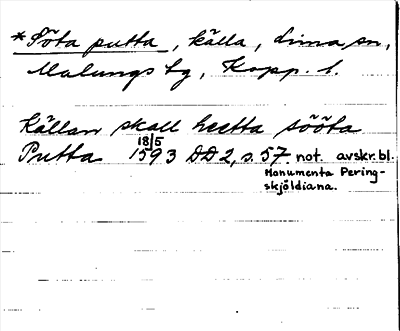 *Söta putta, källa, Lima sn,
Malungs tg, Kopp. l.
Källan skall heetta sööta
Putta 18/5 1593 DD2, s. 57 not. avskr. bl.
Monumenta Pering-
skjöldiana.